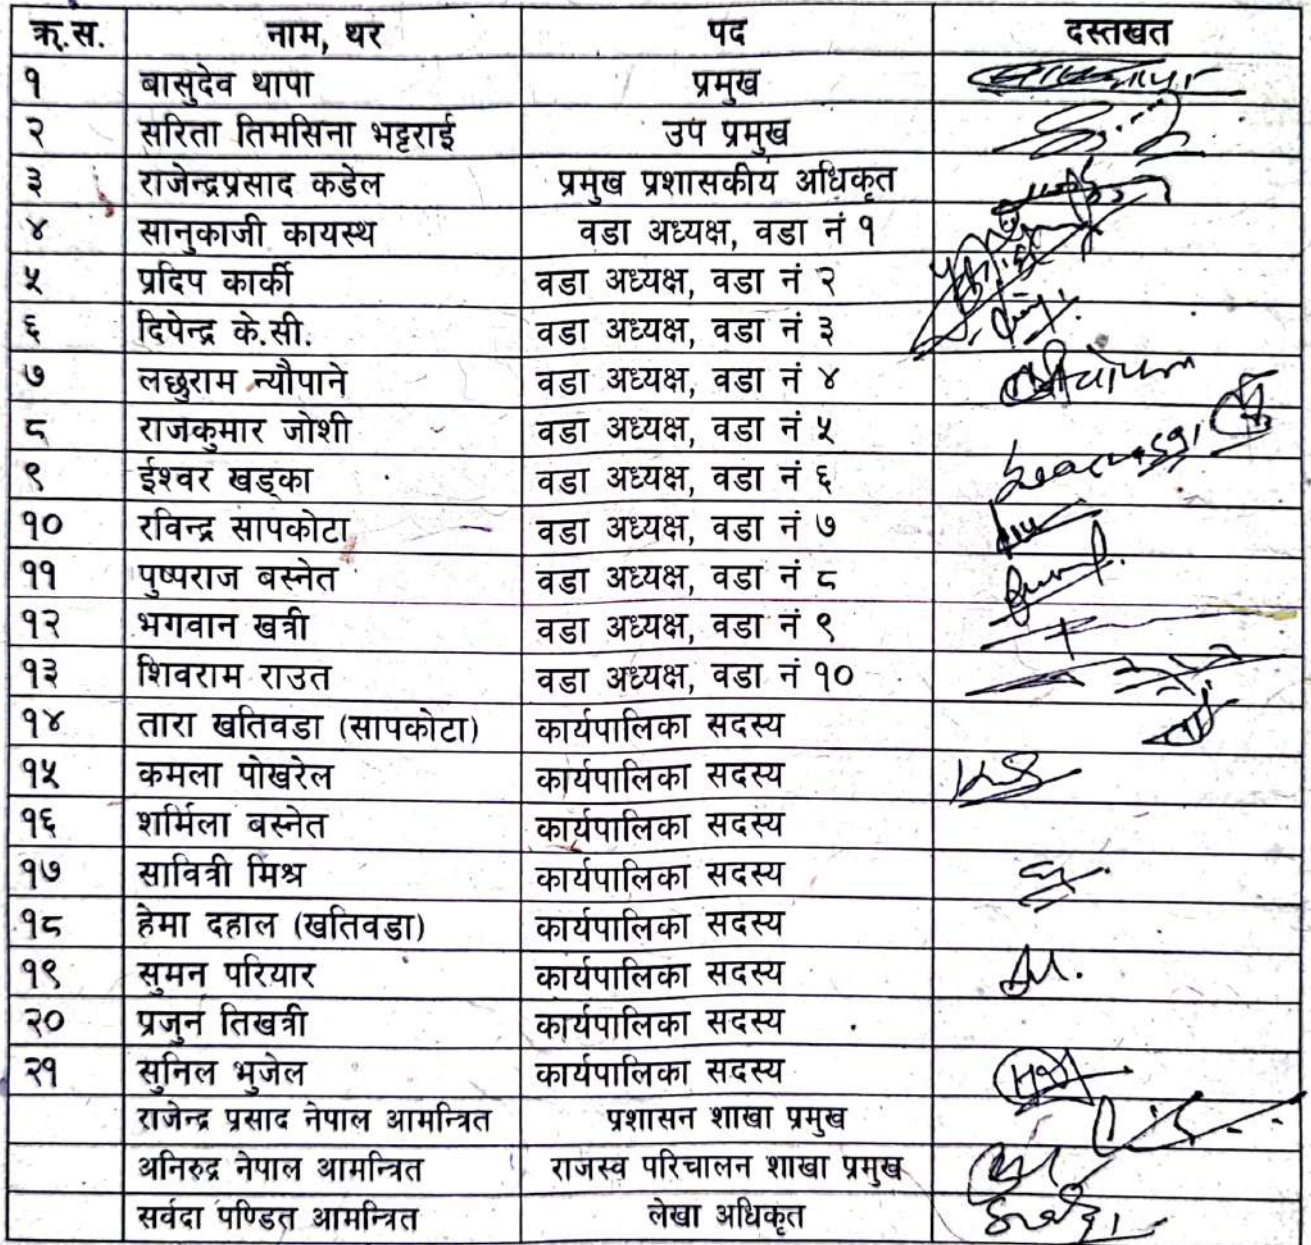 क्र.स. नाम, थर पद दस्तखत
१ बासुदेव थापा प्रमुख
२ सरिता तिमसिना भट्टराई उप प्रमुख
३ राजेन्द्रप्रसाद कडेल प्रमुख प्रशासकीय अधिकृत
४ सानुकाजी कायस्थ वडा अध्यक्ष, वडा नं १
५ प्रदिप कार्की वडा अध्यक्ष, वडा नं २
६ दिपेन्द्र के.सी. वडा अध्यक्ष, वडा नं ३
७ लछुराम न्यौपाने वडा अध्यक्ष, वडा नं ४
८ राजकुमार जोशी वडा अध्यक्ष, वडा नं ५
९ ईश्वर खड्का वडा अध्यक्ष, वडा नं ६
१० रविन्द्र सापकोटा वडा अध्यक्ष, वडा नं ७
११ पुष्पराज बस्नेत वडा अध्यक्ष, वडा नं ८
१२ भगवान खत्री वडा अध्यक्ष, वडा नं ९
१३ शिवराम राउत वडा अध्यक्ष, वडा नं १०
१४ तारा खतिवडा (सापकोटा) कार्यपालिका सदस्य
१५ कमला पोखरेल कार्यपालिका सदस्य
१६ शर्मिला बस्नेत कार्यपालिका सदस्य
१७ सावित्री मिश्र कार्यपालिका सदस्य
१८ हेमा दहाल (खतिवडा) कार्यपालिका सदस्य
१९ सुमन परियार कार्यपालिका सदस्य
२० प्रजुन तिखत्री कार्यपालिका सदस्य
२१ सुनिल भुजेल कार्यपालिका सदस्य
राजेन्द्र प्रसाद नेपाल आमन्त्रित प्रशासन शाखा प्रमुख
अनिरुद्र नेपाल आमन्त्रित राजस्व परिचालन शाखा प्रमुख
सर्वदा पण्डित आमन्त्रित लेखा अधिकृत